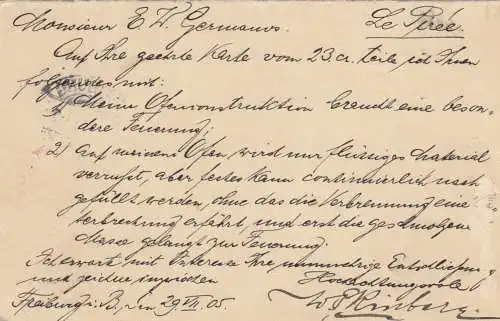 Monsieur E. W. Germanos. Le Pirée.
Auf Ihre geehrte Karte vom 23. cr. teile ich Ihnen
folgendes mit:
1) Meine Ofenconstruktion braucht eine beson-
dere Feuerung;
2) auf meinem Ofen wird nur flüssiges Material
aber festes kann continuierlich nach
gefüllt werden, ohne das die Verbrennung eine
terbrechung erfährt, und erst die geschmolzene
Masse gelangt zur Feuerung.
Ich erwarte mit Interesse Ihre nunmehrige Entschliessung
und zeichne inzwischen Hochachtungsvoll
Freiburg i. B., den 29. VII. 05.